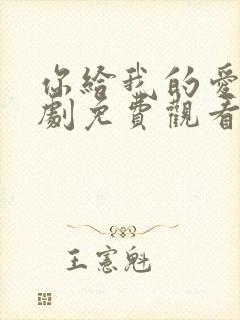 你給我的愛
劇免費觀看
王憲魁